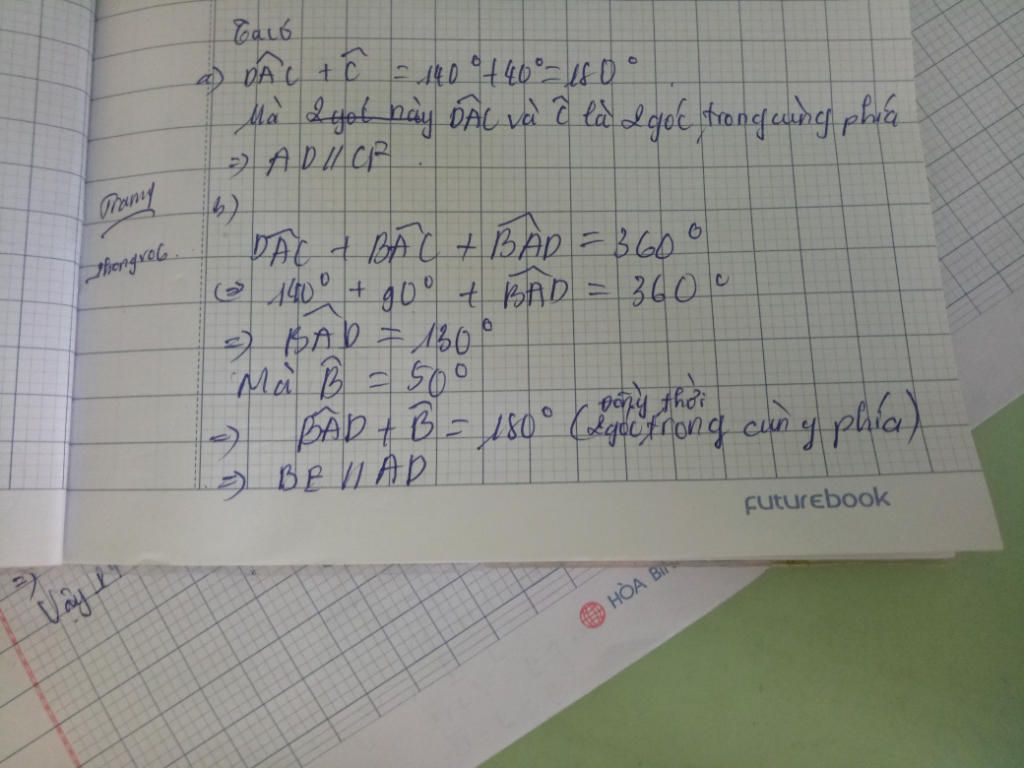 Bài 6
a) DAC + C = 140° + 40° = 180°.
Mà 2 góc này DAC và C là 2 góc trong cùng phía
=> AD // CF.
Tramy
b)
DAC + BAC + BAD = 360°
<=> 140° + 90° + BAD = 360°
=> BAD = 130°
Mà B = 50°
đồng thời
=> BAD + B = 180° (2 góc trong cùng phía)
=> BE // AD
futurebook
=>
Vậy
HÒA BÌN